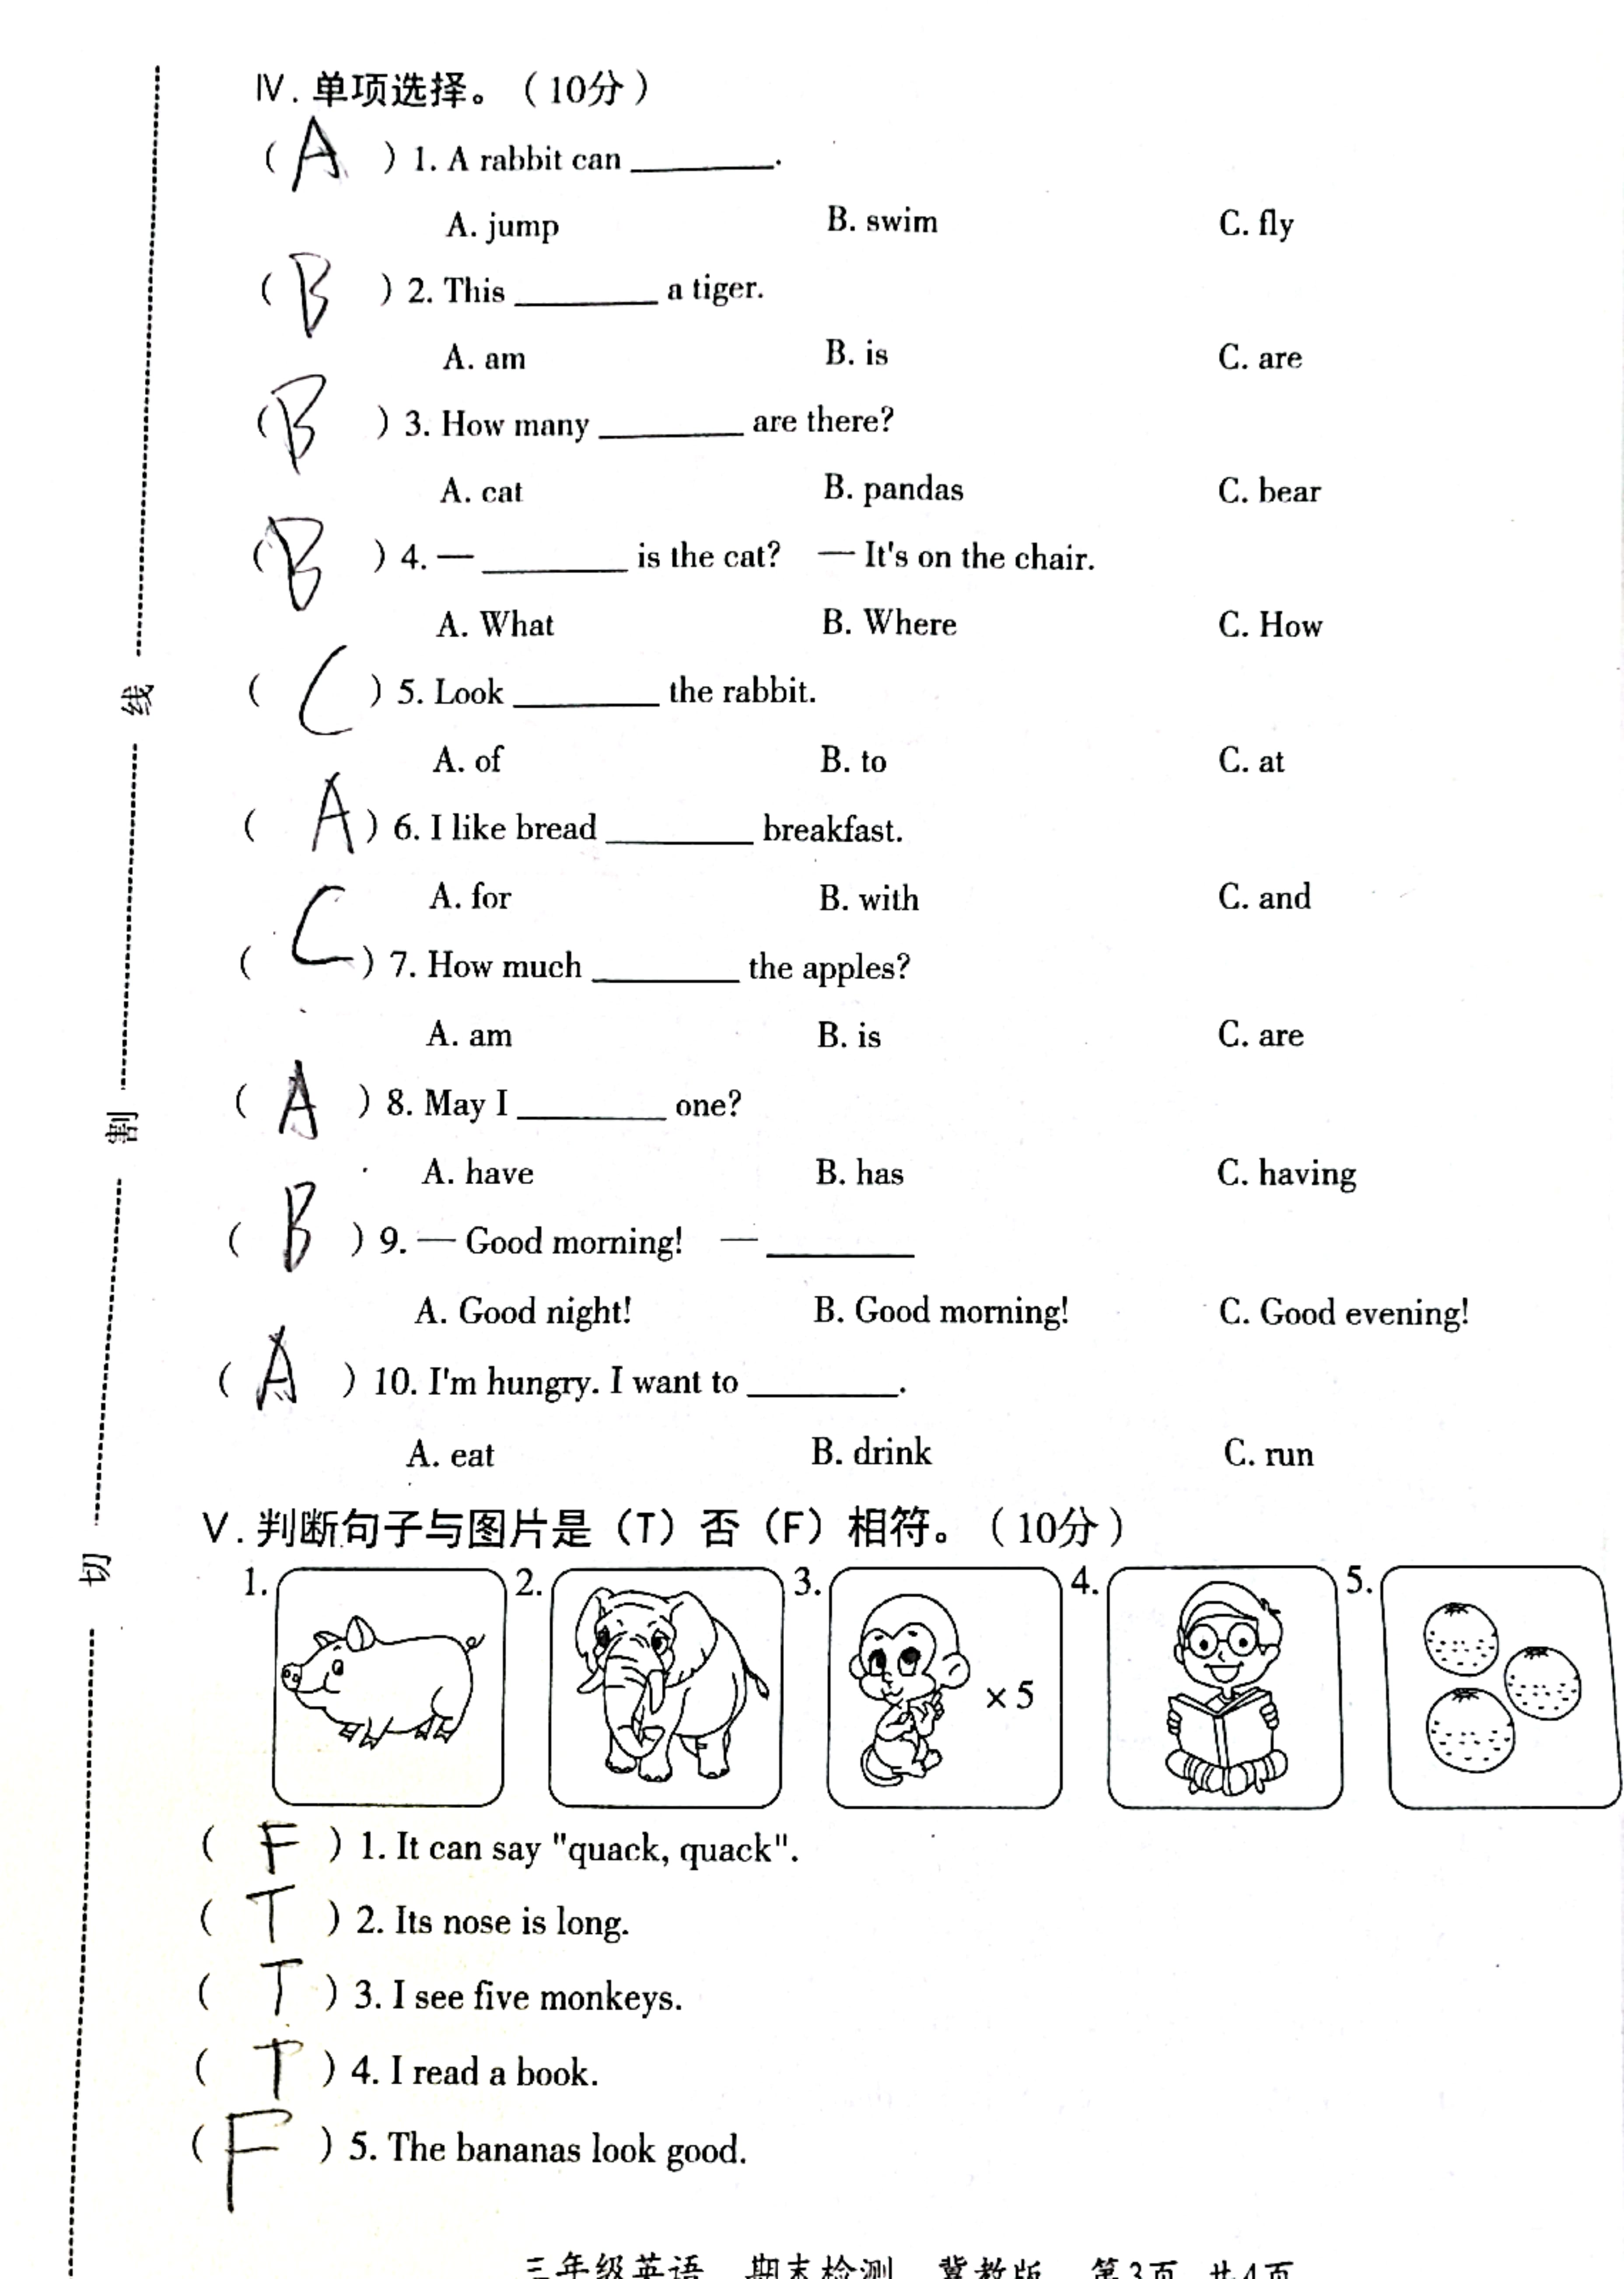 Ⅳ. 单项选择。（10分）
( A ) 1. A rabbit can ________.
A. jump B. swim C. fly
( B ) 2. This ________ a tiger.
A. am B. is C. are
( B ) 3. How many ________ are there?
A. cat B. pandas C. bear
( B ) 4. — ________ is the cat? — It's on the chair.
A. What B. Where C. How
( C ) 5. Look ________ the rabbit.
A. of B. to C. at
( A ) 6. I like bread ________ breakfast.
A. for B. with C. and
( C ) 7. How much ________ the apples?
A. am B. is C. are
( A ) 8. May I ________ one?
A. have B. has C. having
( B ) 9. — Good morning! — ________
A. Good night! B. Good morning! C. Good evening!
( A ) 10. I'm hungry. I want to ________.
A. eat B. drink C. run
Ⅴ. 判断句子与图片是（T）否（F）相符。（10分）
1. 2. 3. 4. 5.
×5
( F ) 1. It can say "quack, quack".
( T ) 2. Its nose is long.
( T ) 3. I see five monkeys.
( T ) 4. I read a book.
( F ) 5. The bananas look good.
三年级英语 期末检测 冀教版 第3页 共4页
线
割
切